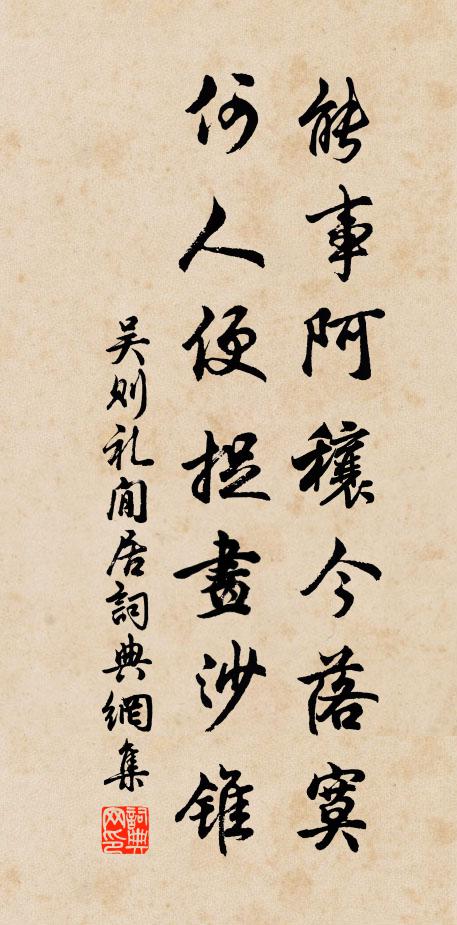 能事阿穰今落寞
何人便捉畫沙錐
吴则礼閒居詞典網集
詞典网印